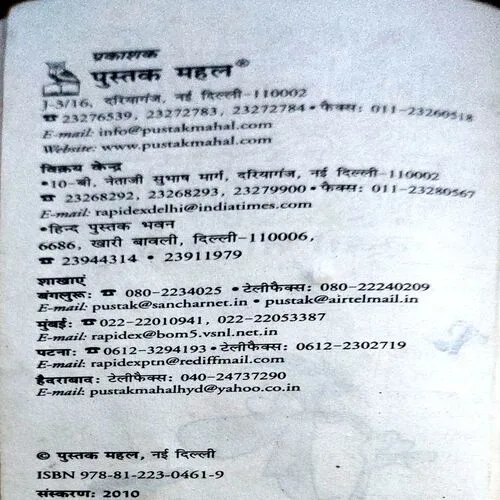 प्रकाशक
पुस्तक महल®
J-3/16, दरियागंज, नई दिल्ली-110002
☎ 23276539, 23272783, 23272784 • फैक्स: 011-23260518
E-mail: info@pustakmahal.com
Website: www.pustakmahal.com
विक्रय केन्द्र
•10-बी, नेताजी सुभाष मार्ग, दरियागंज, नई दिल्ली-110002
☎ 23268292, 23268293, 23279900 • फैक्स: 011-23280567
E-mail: rapidexdelhi@indiatimes.com
•हिन्द पुस्तक भवन
6686, खारी बावली, दिल्ली-110006,
☎ 23944314 • 23911979
शाखाएं
बंगलुरू: ☎ 080-2234025 • टेलीफैक्स: 080-22240209
E-mail: pustak@sancharnet.in • pustak@airtelmail.in
मुंबई: ☎ 022-22010941, 022-22053387
E-mail: rapidex@bom5.vsnl.net.in
पटना: ☎ 0612-3294193 • टेलीफैक्स: 0612-2302719
E-mail: rapidexptn@rediffmail.com
हैदराबाद: टेलीफैक्स: 040-24737290
E-mail: pustakmahalhyd@yahoo.co.in
© पुस्तक महल, नई दिल्ली
ISBN 978-81-223-0461-9
संस्करण: 2010